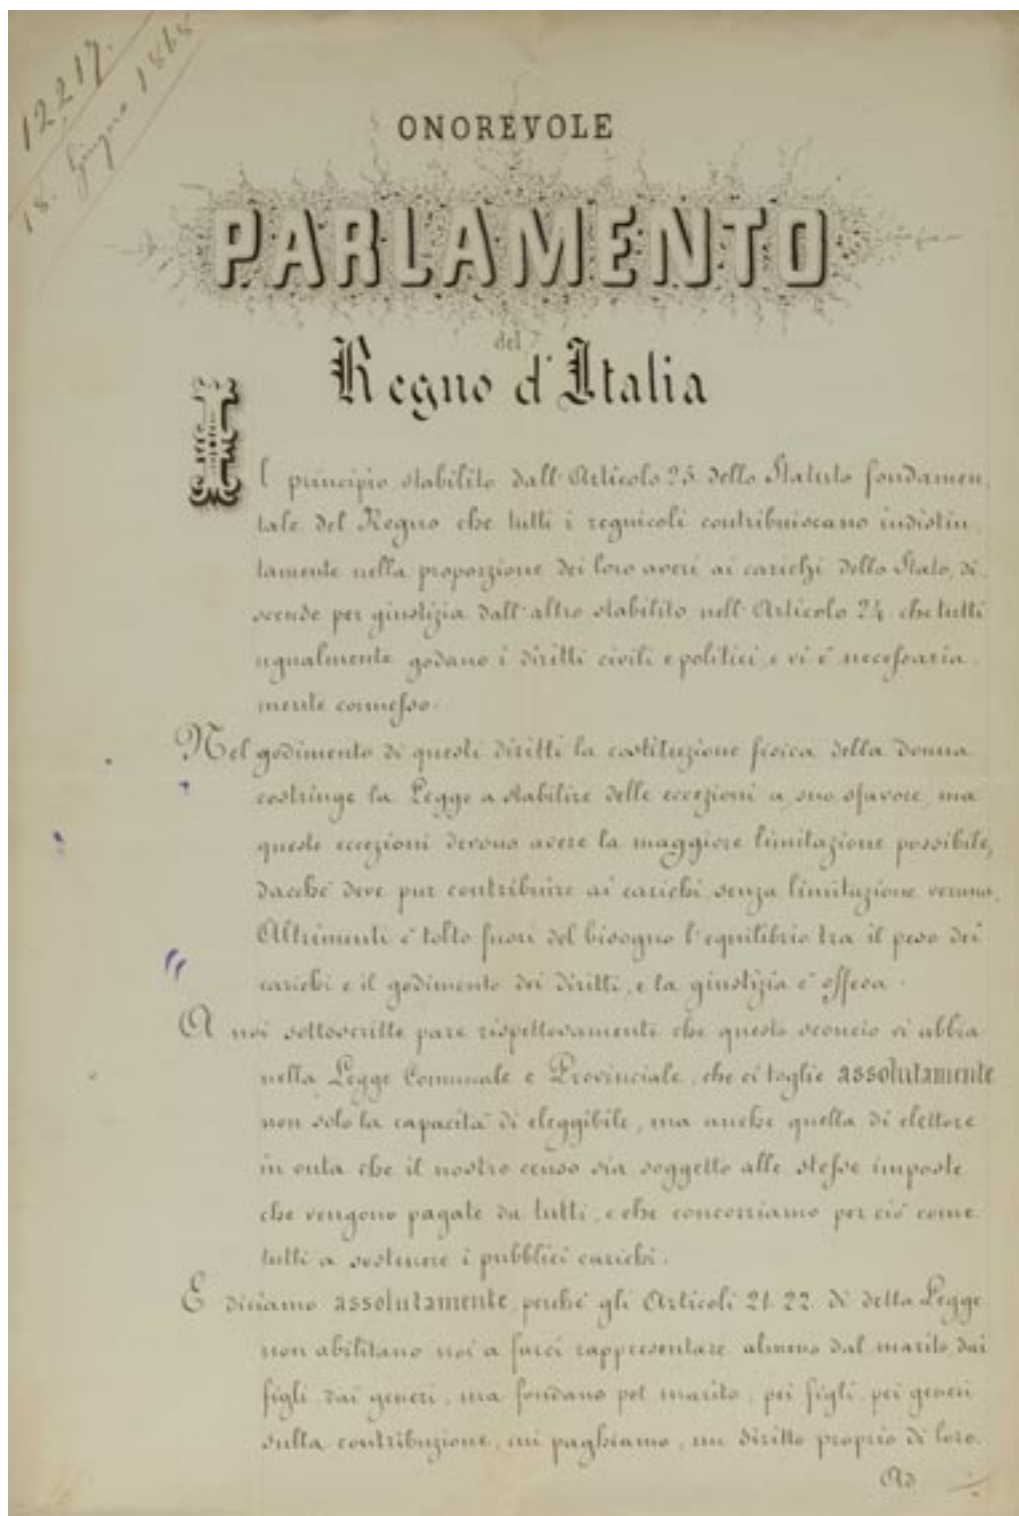 12217.
18. Giugno 1868
ONOREVOLE
PARLAMENTO
del
Regno d'Italia
Il principio stabilito dall'Articolo 25. dello Statuto fondamen,
tale del Regno che tutti i regnicoli contribuiscano indistin,
tamente nella proporzione dei loro averi ai carichi dello Stato, di,
scende per giustizia dall'altro stabilito nell'Articolo 24. che tutti
ugualmente godano i diritti civili e politici, e vi è necessaria,
mente connesso.
Nel godimento di questi diritti la costituzione fisica della donna
costringe la Legge a stabilire delle eccezioni a suo sfavore, ma
queste eccezioni devono avere la maggiore limitazione possibile,
dacchè deve pur contribuire ai carichi senza limitazione veruna.
Altrimenti è tolto fuori del bisogno l'equilibrio tra il peso dei
carichi e il godimento dei diritti, e la giustizia è offesa.
A noi sottoscritte pare rispettosamente che questo sconcio vi abbia
nella Legge Comunale e Provinciale, che ci toglie assolutamente
non solo la capacità di eleggibile, ma anche quella di elettore
in onta che il nostro censo sia soggetto alle stesse imposte
che vengono pagate da tutti, e che concorriamo per ciò come
tutti a sostenere i pubblici carichi.
E diciamo assolutamente, perchè gli Articoli 21. 22. di detta Legge
non abilitano noi a farci rappresentare almeno dal marito dai
figli, dai generi, ma fondano pel marito, pei figli, pei generi
sulla contribuzione, cui paghiamo, un diritto proprio di loro.
Ad